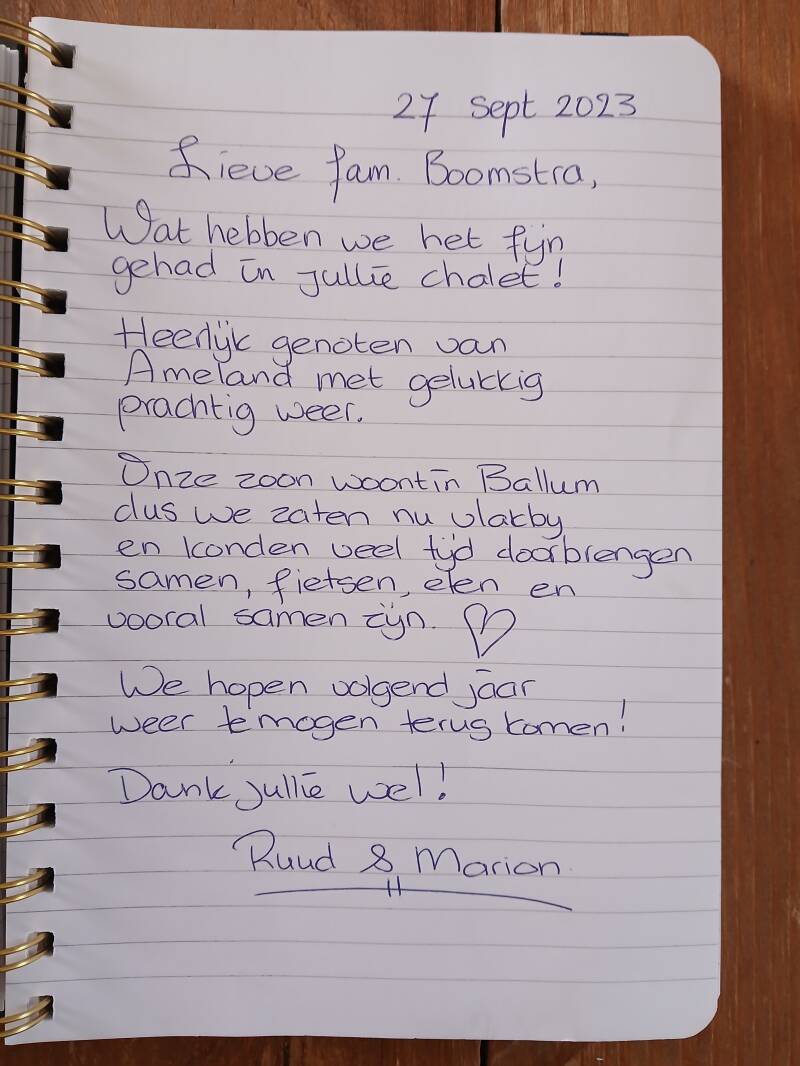 27 Sept 2023
Lieve fam. Boomstra,
Wat hebben we het fijn
gehad in jullie chalet!
Heerlijk genoten van
Ameland met gelukkig
prachtig weer.
Onze zoon woont in Ballum
dus we zaten nu vlakby
en konden veel tijd doorbrengen
samen, fietsen, eten en
vooral samen zijn. ♡
We hopen volgend jaar
weer te mogen terug komen!
Dank jullie wel!
Ruud & Marion